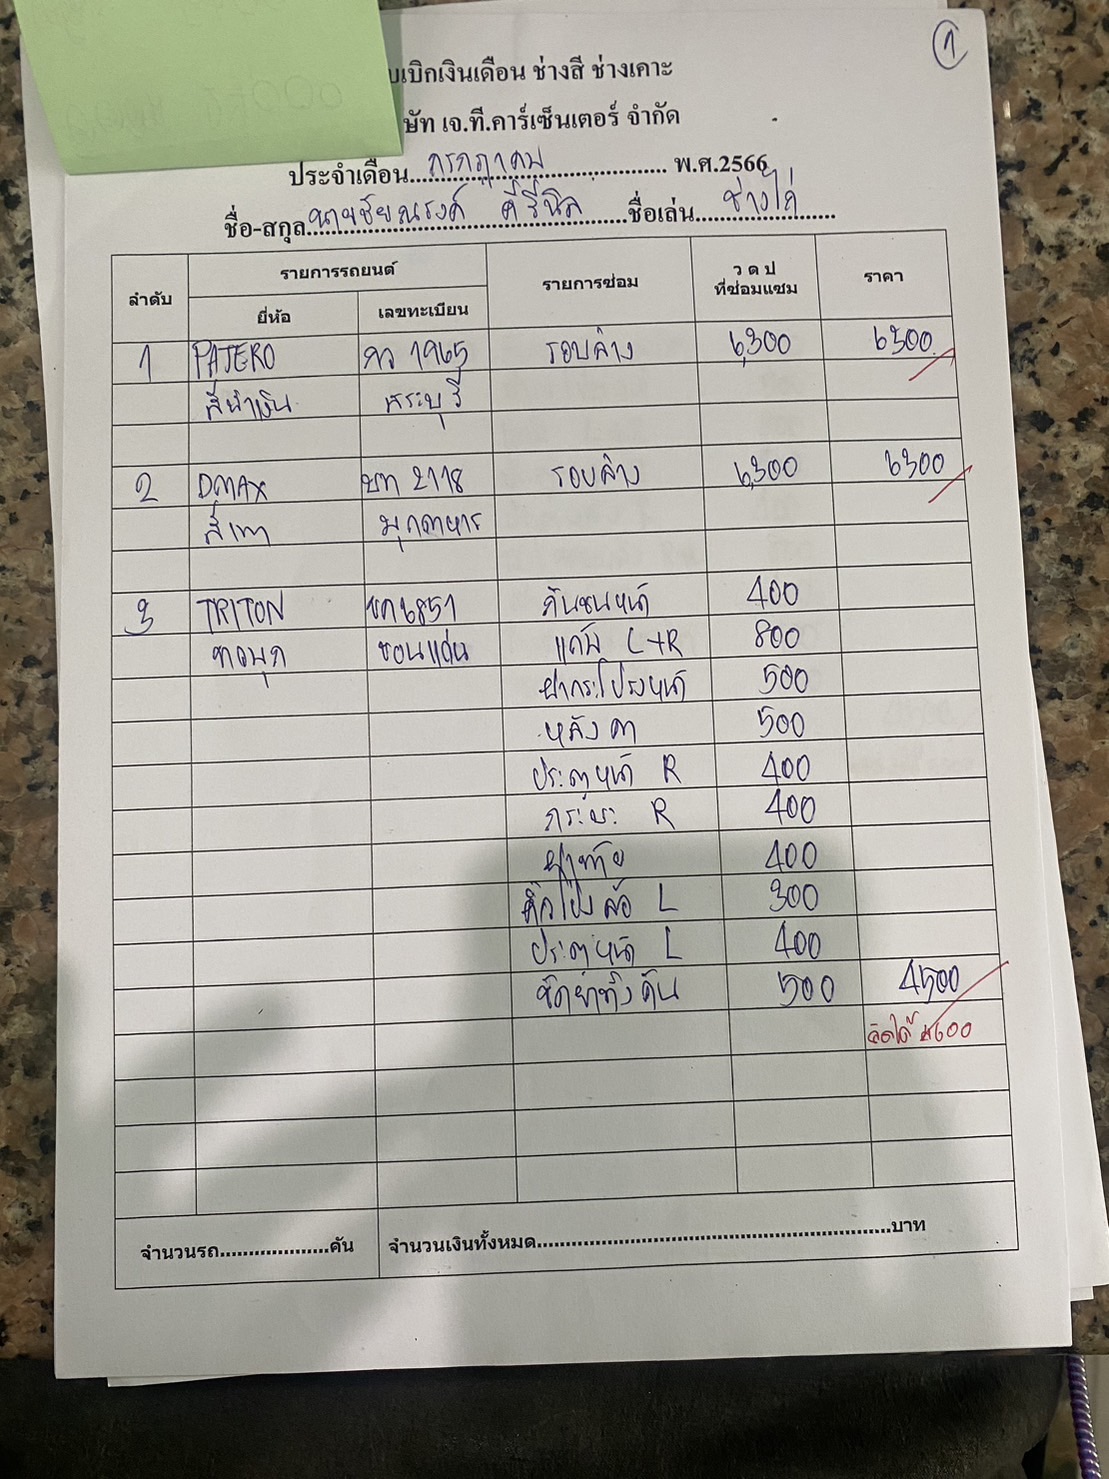 ①
บเบิกเงินเดือน ช่างสี ช่างเคาะ
ษัท เจ.ที.คาร์เซ็นเตอร์ จำกัด
ประจำเดือน กรกฎาคม พ.ศ.2566
ชื่อ-สกุล นายชัยณรงค์ คีรีนิล ชื่อเล่น ช่างไก่
ลำดับ รายการรถยนต์ รายการซ่อม ว ด ป ที่ซ่อมแซม ราคา
ยี่ห้อ เลขทะเบียน
1 PAJERO กว 1965 รอบล่าง 6,300 6300
สีน้ำเงิน สระบุรี
2 DMAX บท 2118 รอบล่าง 6,300 6300
สีเทา มุกดาหาร
3 TRITON 6851 กันชนหน้า 400
ขาวมุก ขอนแก่น แก้ม L+R 800
ฝากระโปรงหน้า 500
หลังคา 500
ประตูหน้า R 400
กระบะ R 400
ฝาท้าย 400
คิ้วโป่งล้อ L 300
ประตูหน้า L 400
ขัดยาทั้งคัน 500 4500
คิดได้ 4600
จำนวนรถ....................คัน จำนวนเงินทั้งหมด....................บาท